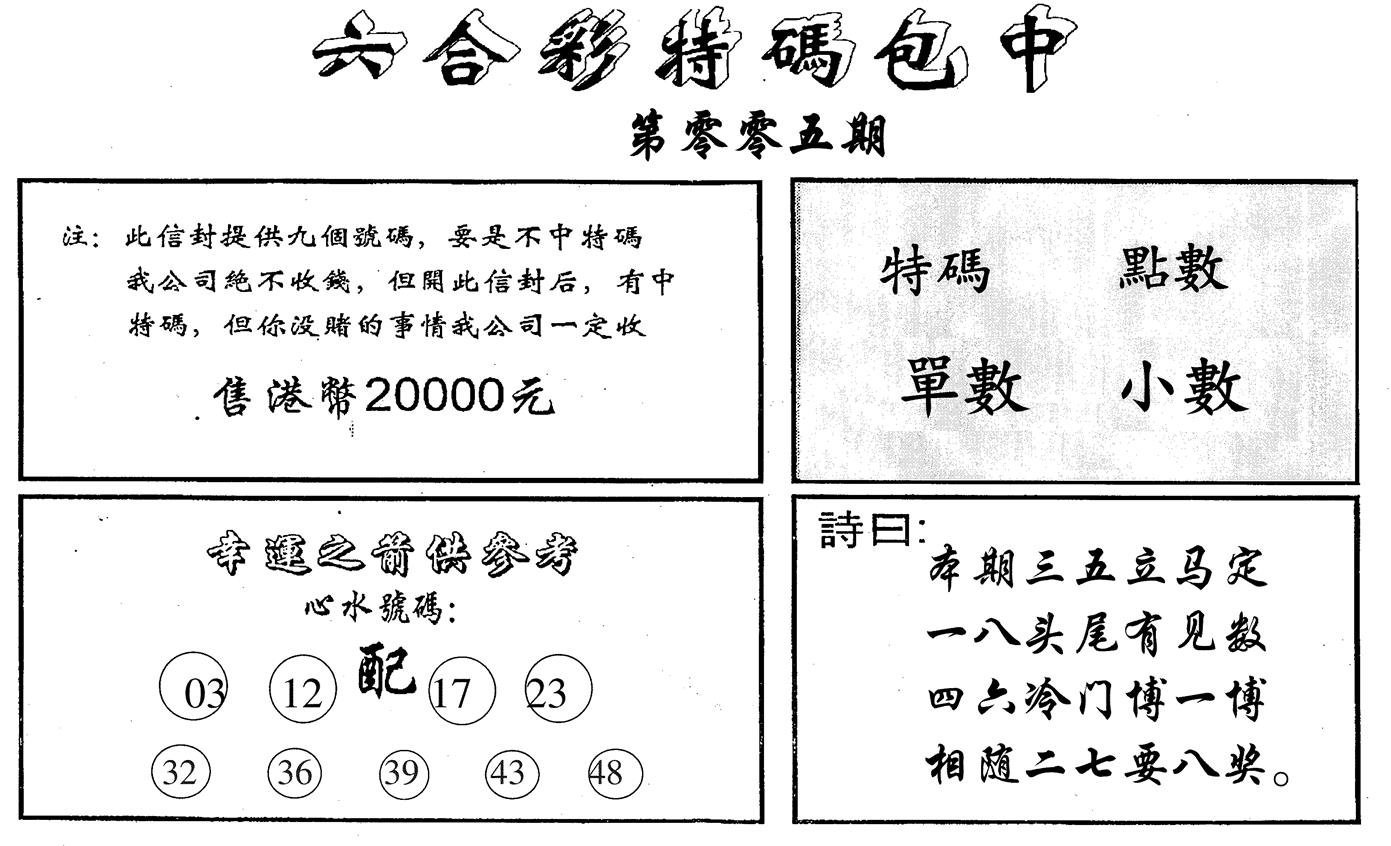 六合彩特碼包中
第零零五期
注：此信封提供九個號碼，要是不中特碼
我公司絕不收錢，但開此信封后，有中
特碼，但你没賭的事情我公司一定收
售港幣20000元
特碼 點數
單數 小數
幸運之箭供參考
心水號碼：
03 12 配 17 23
32 36 39 43 48
詩曰：
本期三五立马定
一八头尾有见数
四六冷门博一博
相随二七要八奖。